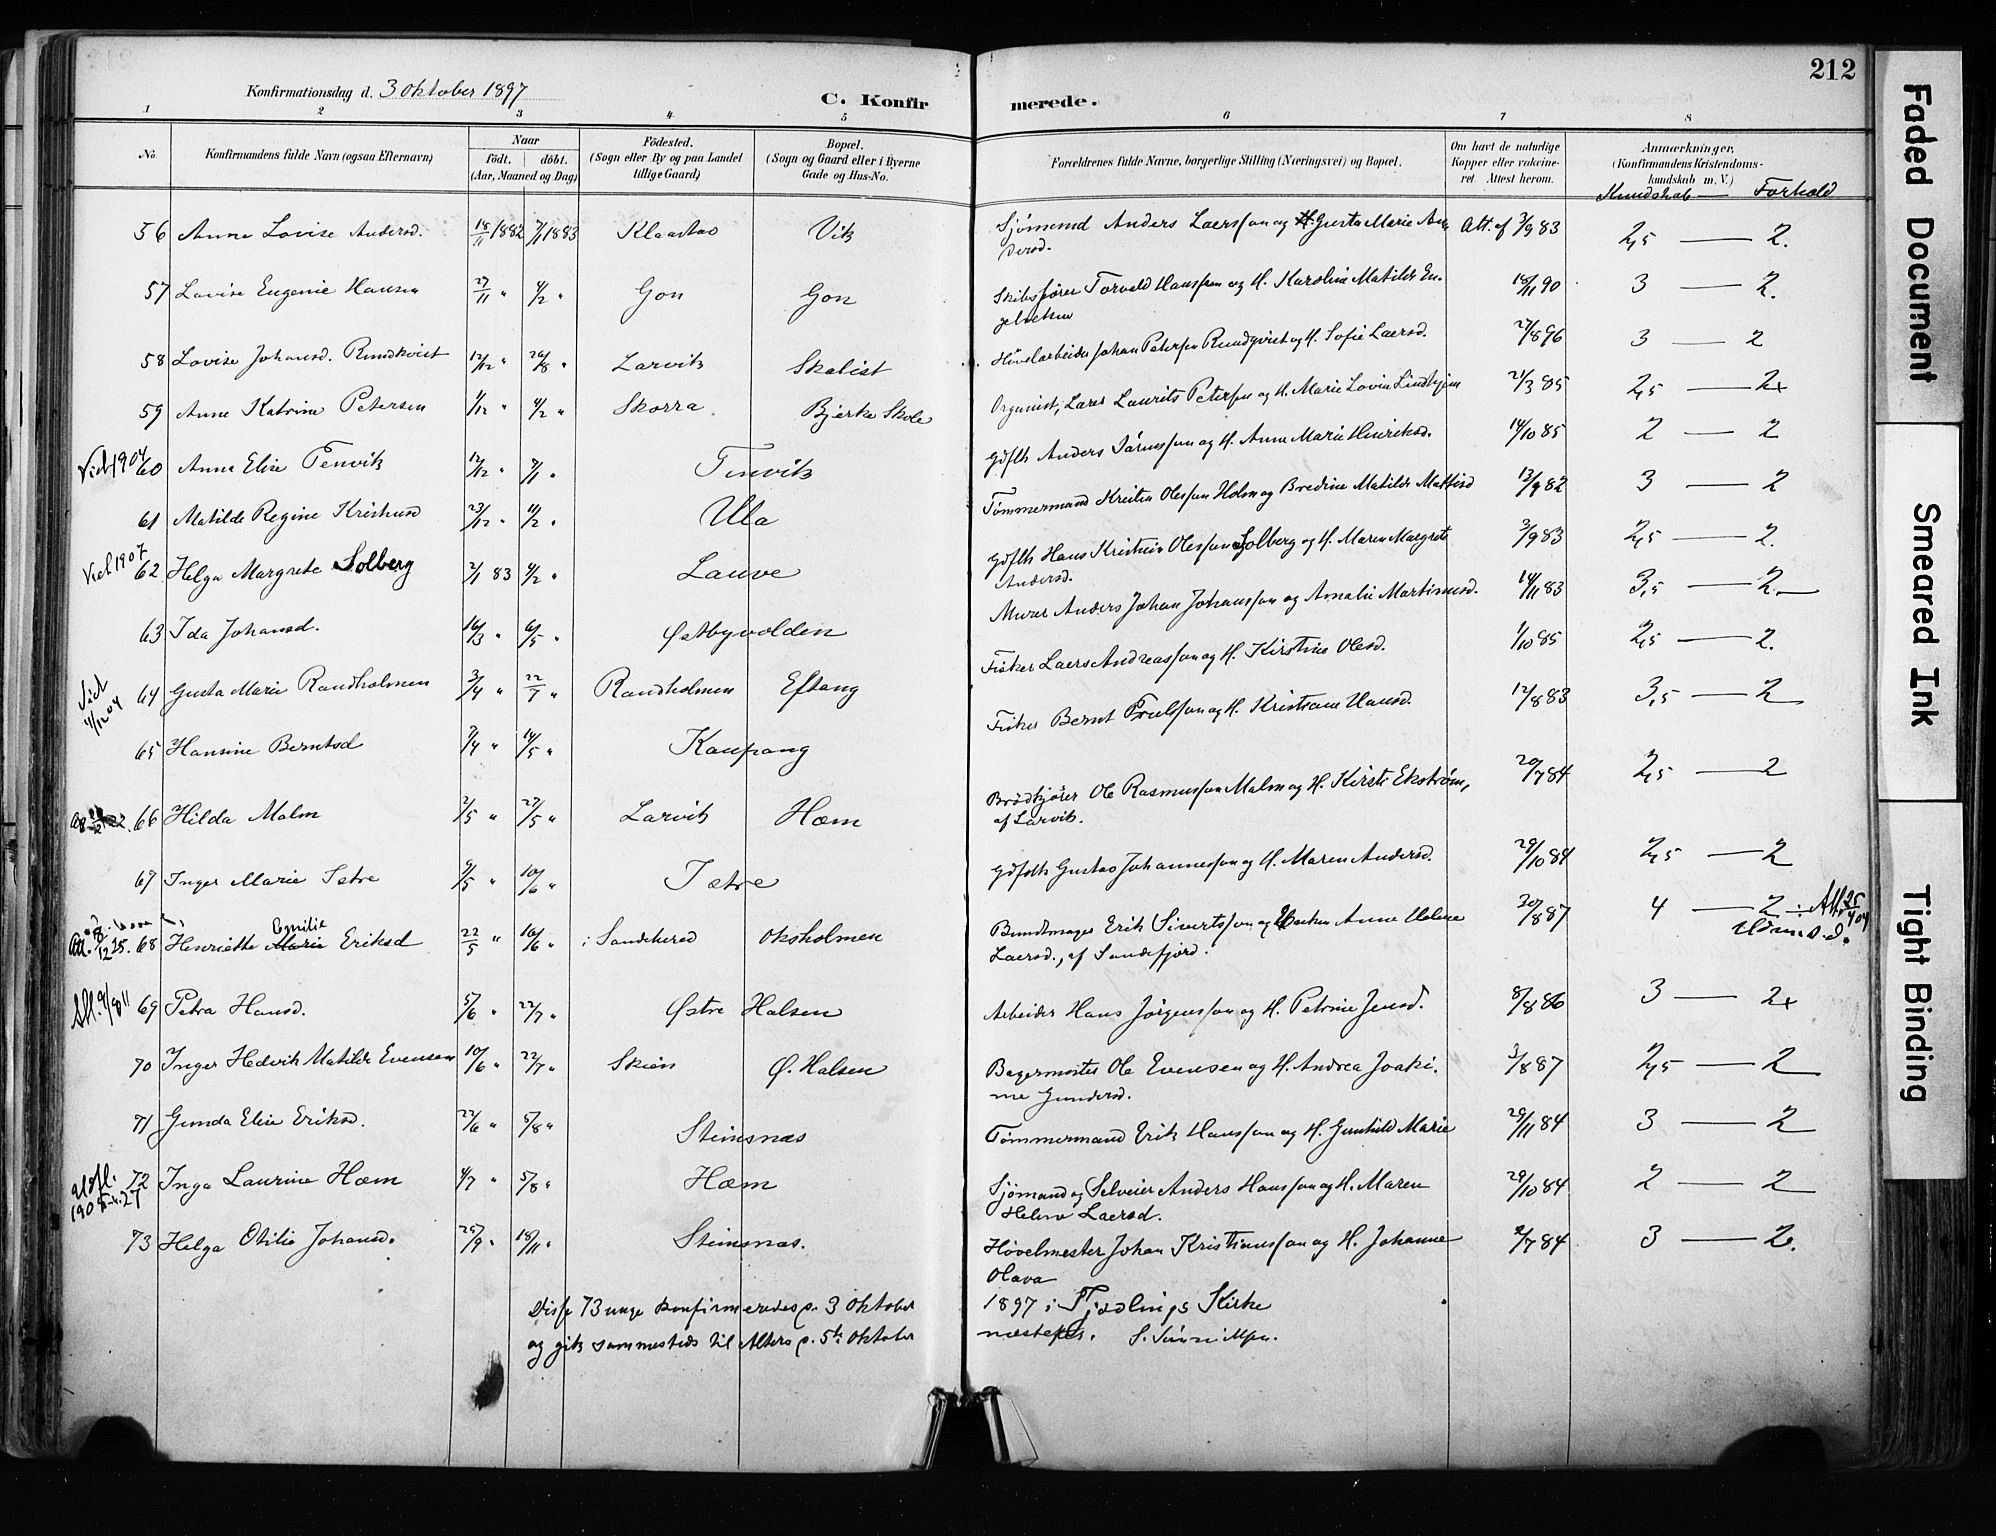 212
Konfirmationsdag d. 3 Oktober 1897
C. Konfirmerede.
1 2 3 4 5 6 7 8
No.
Konfirmandens fulde Navn (ogsaa Efternavn)
Naar
født. døbt.
(Aar, Maaned og Dag)
Fødested.
(Sogn eller By og paa Landet
tillige Gaard)
Bopæl.
(Sogn og Gaard eller i Byerne
Gade og Hus-No.
Forældrenes fulde Navne, borgerlige Stilling (Næringsvei) og Bopæl.
Om havt de naturlige
Kopper eller vakcine-
ret. Attest herom.
Anmærkninger,
(Konfirmandens Kristendoms-
kundskab m. V.)
Kundskab — Forhold
56 Anna Lovise Andersd. 18/11 1882 7/1 1883 Klaastao Vik Sjömend Anders Laersson og H. Gusta Marie An
dersd. Att. af 3/9 83 2,5 — 2.
57 Lovise Eugenie Hansen 27/11 " 4/2 " Gon Gon Skibsfører Torvald Hanssen og H. Karoline Matilde En-
gelretsen 18/11 90 3 — 2.
58 Lovise Johansd. Rundkvist 12/12 " 26/8 " Larvik Skalist Høvelarbeider Johan Petersen Rundqvist og H. Sofie Laersd. 27/8 96 3 — 2
59 Anne Katrine Petersen 1/12 " 4/2 " Skorra Bjerke Skole Organist, Lærer Laurits Petersen og H. Marie Lovise Lindhjem 21/3 85 2,5 — 2+
Viet 1904 60 Anna Elise Tenvik 12/12 " 7/1 " Tenvik Anders og H. Anne Marie Henriksd. 14/10 85 2 — 2
61 Matilde Regine Kristensd 23/12 " 11/2 " Ula Tømmermand Kristen Olesson Holm og Bredine Matilde Mattisd 13/9 82 3 — 2
Viet 1907 62 Helga Margrete Solberg 2/1 83 4/2 " Lauve Hans Kristian Olesson Solberg og H. Maren Margrete
Andersd. 3/9 83 2,5 — 2.
63 Ida Johansd. 16/3 " 6/5 " Østbyvolden Murer Anders Johan Johansson og Amalie Martinusd. 14/11 83 3,5 — 2.
Viet 4/12 04 64 Gusta Marie Raudholmen 3/4 " 22/7 " Raudholmen Eftang Fisker Laers Andreasson og H. Kirstine Olesd. 1/10 85 2,5 — 2.
65 Hansine Berntsd 7/4 " 14/5 " Kaupang Fisker Bernt Poulsson og H. Kristiane Hansd. 12/8 83 3,5 — 2
66 Hilda Malm 2/5 " 27/5 " Larvik Hæm Brødkjører Ole Rasmusson Malm og H. Kirsti Ekstrøm,
af Larvik. 20/7 84 2,5 — 2
67 Inger Marie Istre 9/5 " 10/6 " Istre Gustav Johannesson og H. Maren Andersd. 29/10 84 2,5 — 2
68 Henriette Marie Emilie Eriksd 22/5 " 16/6 " i Sandehered Oksholmen Bundtmager Erik Sivertsson og Enken Anne Helene
Laersd., af Sandefjord. 30/8 87 4 — 2
69 Petra Hansd. 5/6 " 22/7 " Østre Halsen Arbeider Hans Jörgensson og H. Petrine Jensd. 8/8 86 3 — 2+
70 Inger Hedevik Matilde Evensen 10/6 " 22/7 " Skien Ø. Halsen Bagermester Ole Evensen og H. Andrea Joaki-
me Gundersd. 3/8 87 2,5 — 2
71 Gunda Elise Eriksd. 22/6 " 5/8 " Steinsnæs Tømmermand Erik Hansson og H. Gunhild Marie 29/11 84 3 — 2
72 Inga Laurine Hæm 4/7 " 5/8 " Hæm Sjömand og Selveier Anders Hansson og H. Maren
Helene Laersd. 29/10 84 2 — 2
73 Helga Otilie Johansd. 25/9 " 18/11 " Steinsnæs. Høvelmester Johan Kristiansson og H. Johanne
Olava 2/7 84 3 — 2.
Disse 73 unge konfirmeredes p. 3 Oktober 1897 i Tjødlings Kirke
og gik sammesteds til Alters p. 5te Oktober næstefter.
Faded Document
Smeared Ink
Tight Binding